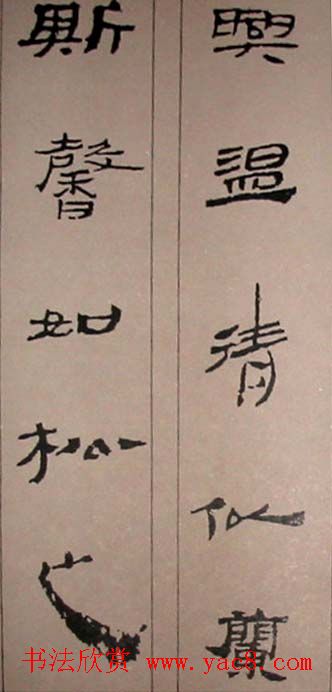 興溫清似蘭
斯馨如松之
书法欣赏 www.yac8.com